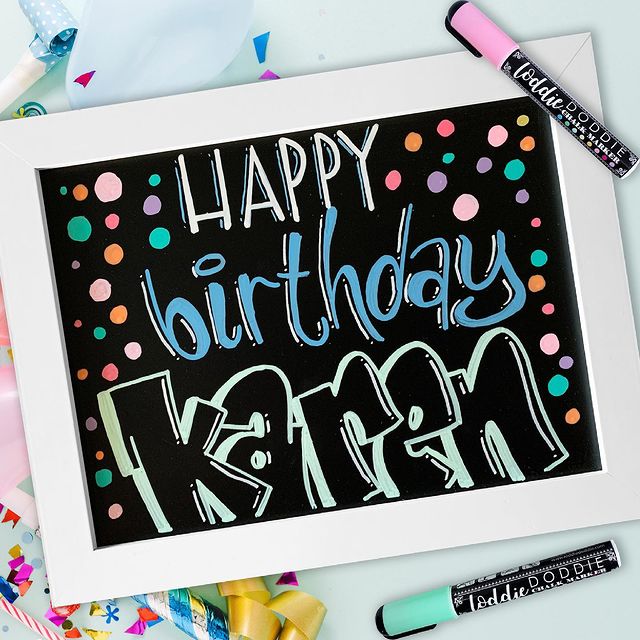 HAPPY
birthday
Karen
loddie DODDIE
CHALK MARKER
loddie DODDIE
CHALK MARKER